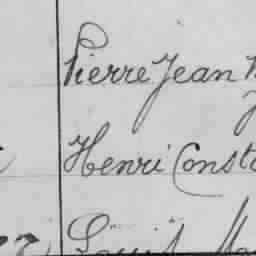 Pierre Jean
Henri Const
Louis